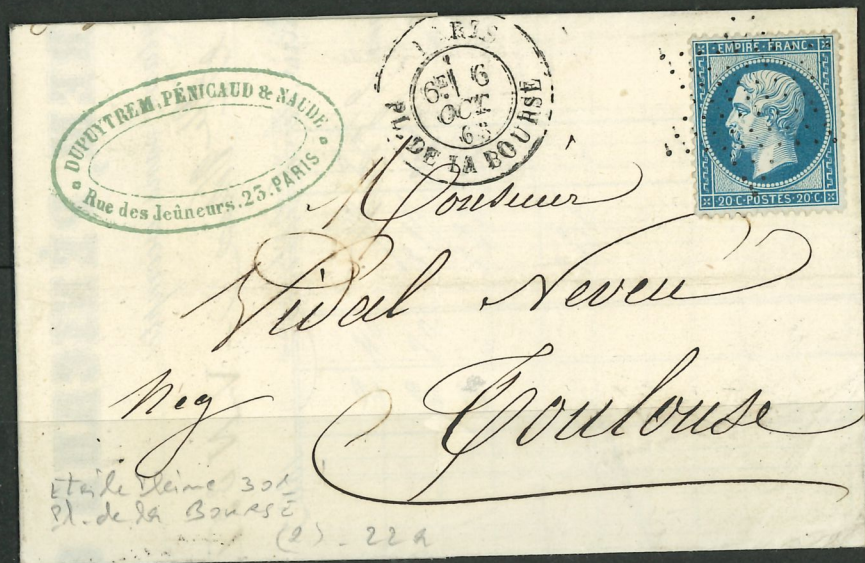 DUPUYTREM, PÉNICAUD & NAUDE
Rue des Jeûneurs. 23. PARIS
PARIS
6E 6
OCT
63
PL. DE LA BOURSE
EMPIRE FRANC
20 C POSTES 20 C
Monsieur
Vidal Neveu
Neg
Toulouse
Etoile pleine
Pl. de la Bourse
(2) - 22 a